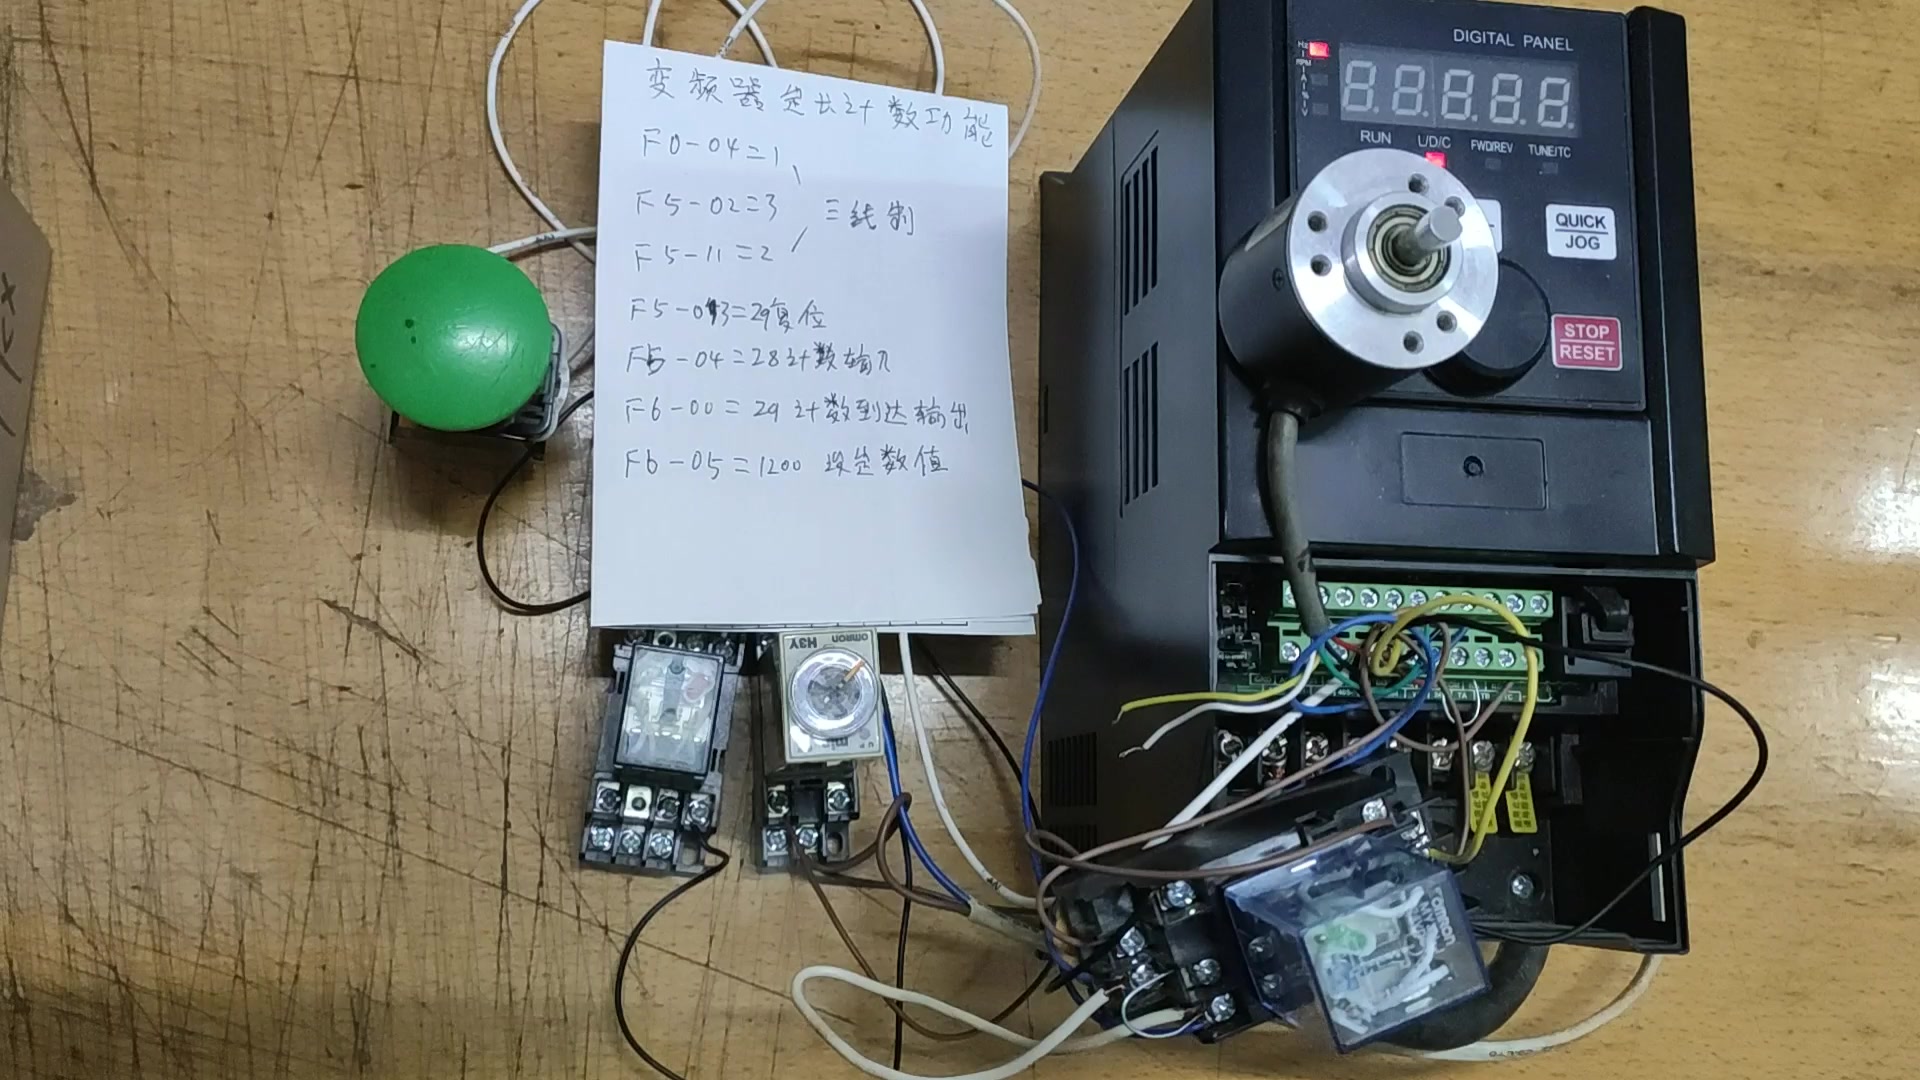 变频器定长计数功能
F0-04=1
F5-02=3 三线制
F5-11=2
F5-03=29复位
F5-04=28计数输入
F6-00=29计数到达输出
F6-05=1200 设定数值
DIGITAL PANEL
Hz
RPM
A
%
V
88888
RUN L/D/C FWD/REV TUNE/TC
QUICK
JOG
STOP
RESET
H3Y omron
min
UP
TA TB TC
omron